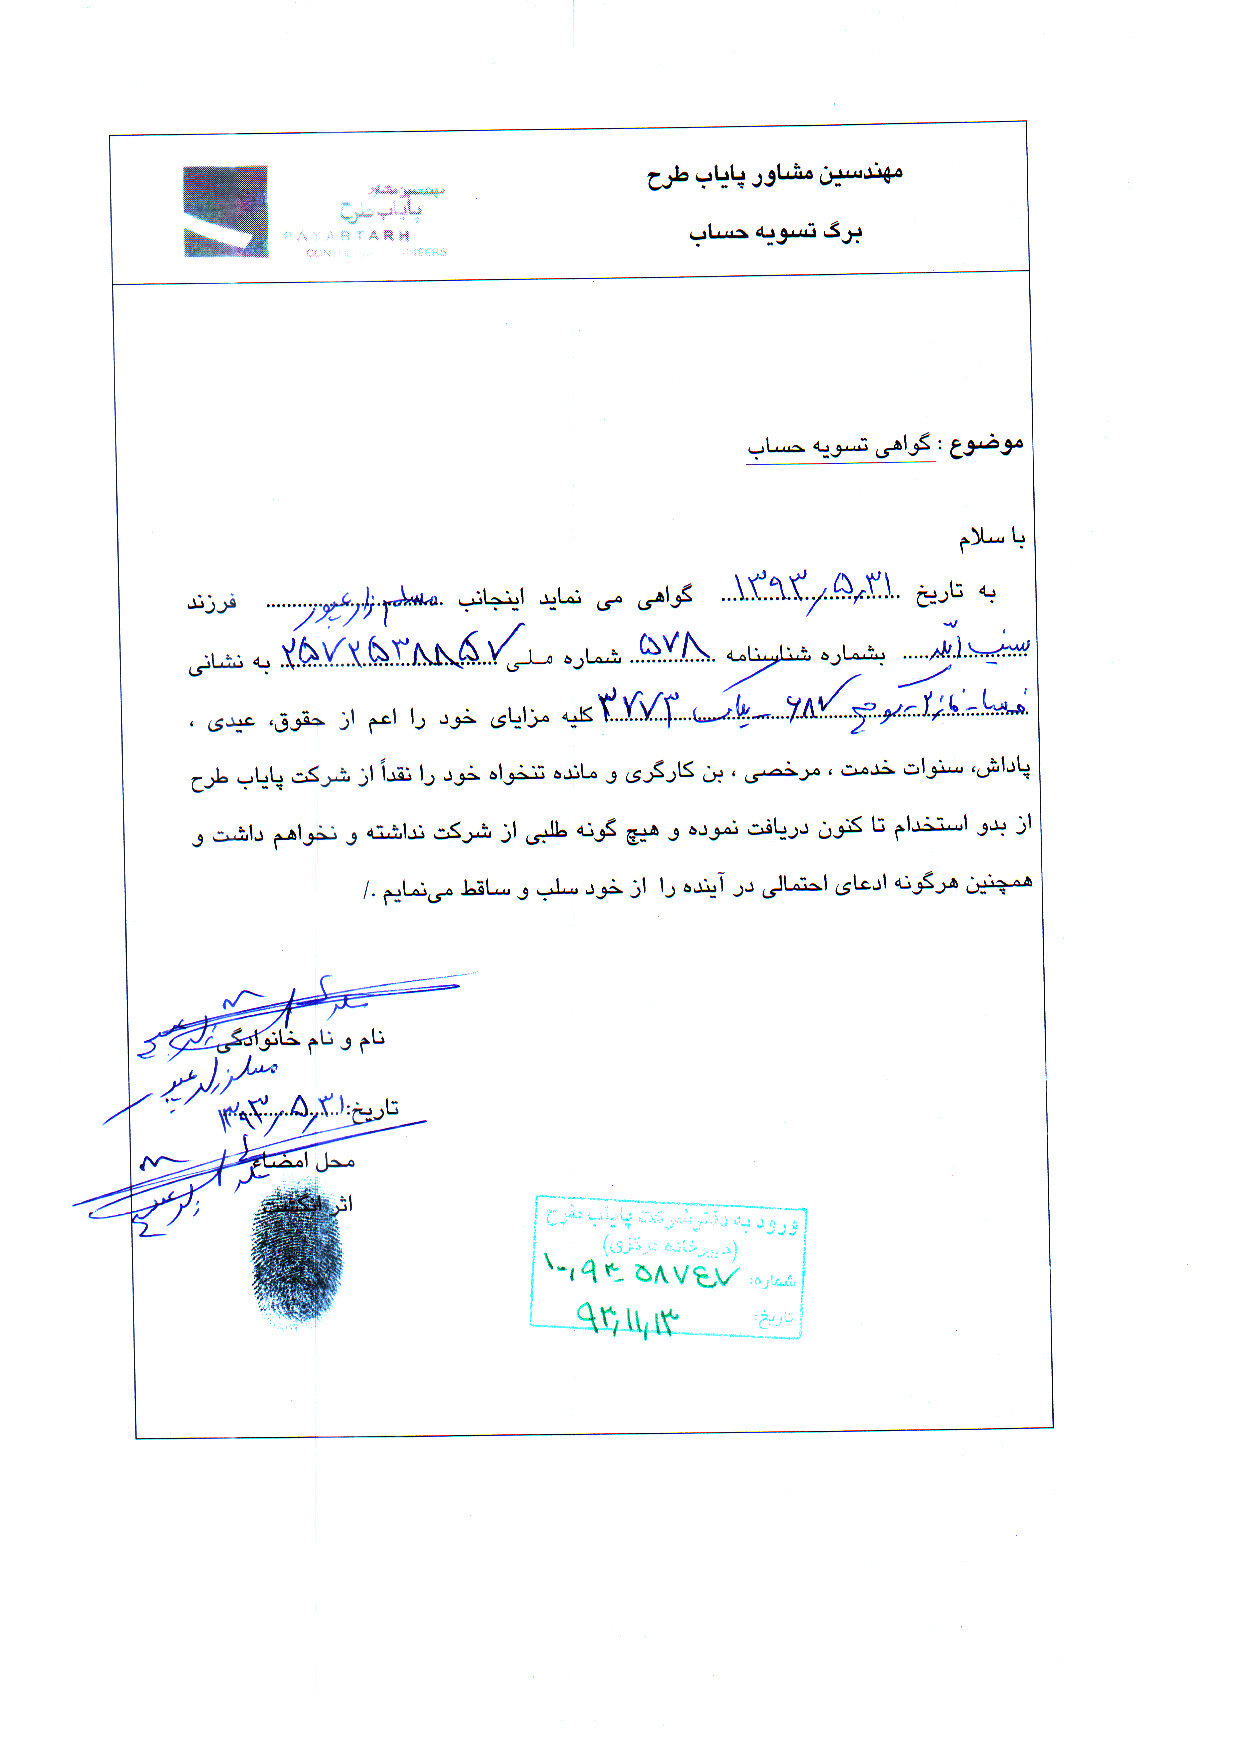 مهندسین مشاور پایاب طرح
برگ تسویه حساب
مهندسین مشاور
پایاب طرح
PAYABTARH
موضوع : گواهی تسویه حساب
با سلام
به تاریخ ۱۳۹۳/۵/۳۱ گواهی می نماید اینجانب مسلم زارعپور فرزند
بشماره شناسنامه ۵۷۸ شماره ملی ۲۵۷۲۵۳۸۸۵۷ به نشانی
فسا - فاز ۲ - ۶۸۷ - پلاک ۳۷۷۳ کلیه مزایای خود را اعم از حقوق، عیدی ،
پاداش، سنوات خدمت ، مرخصی ، بن کارگری و مانده تنخواه خود را نقداً از شرکت پایاب طرح
از بدو استخدام تا کنون دریافت نموده و هیچ گونه طلبی از شرکت نداشته و نخواهم داشت و
همچنین هرگونه ادعای احتمالی در آینده را از خود سلب و ساقط می‌نمایم ./
نام و نام خانوادگی
مسلم زارعپور
تاریخ: ۱۳۹۳/۵/۳۱
محل امضاء
اثر انگشت
ورود به دفتر شرکت پایاب طرح
(دبیرخانه مرکزی)
شماره: ۱۰۰۹۳-۵۸۷۴۷
تاریخ: ۹۳/۱۱/۱۳